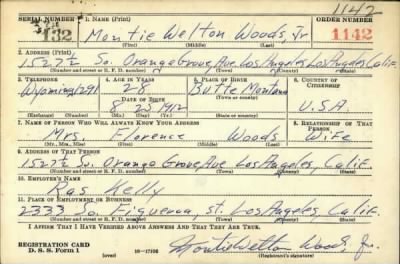 1142
SERIAL NUMBER
1. NAME (Print)
ORDER NUMBER
132
Montie Welton Woods, Jr
1142
(First) (Middle) (Last)
2. ADDRESS (Print)
1527½ So. Orange Grove Ave Los Angeles Los Angeles Calif.
(Number and street or R. F. D. number) (Town) (County) (State)
3. TELEPHONE
4. AGE IN YEARS
5. PLACE OF BIRTH
6. COUNTRY OF CITIZENSHIP
Wyoming 1291
28
Butte
DATE OF BIRTH
(Town or county)
8 23 1912
Montana
U.S.A
(Exchange) (Number)
(Mo.) (Day) (Yr.)
(State or country)
7. NAME OF PERSON WHO WILL ALWAYS KNOW YOUR ADDRESS
8. RELATIONSHIP OF THAT PERSON
Mrs. Florence Woods
Wife
(Mr., Mrs., Miss) (First) (Middle) (Last)
9. ADDRESS OF THAT PERSON
1527½ So. Orange Grove Ave Los Angeles, Calif.
(Number and street or R. F. D. number) (Town) (County) (State)
10. EMPLOYER'S NAME
Ras Kelly
11. PLACE OF EMPLOYMENT OR BUSINESS
2333 So. Figueroa, st. Los Angeles, Calif.
(Number and street or R. F. D. number) (Town) (County) (State)
I AFFIRM THAT I HAVE VERIFIED ABOVE ANSWERS AND THAT THEY ARE TRUE.
REGISTRATION CARD
D. S. S. Form 1
(over)
Montie Welton Woods, Jr.
(Registrant's signature)